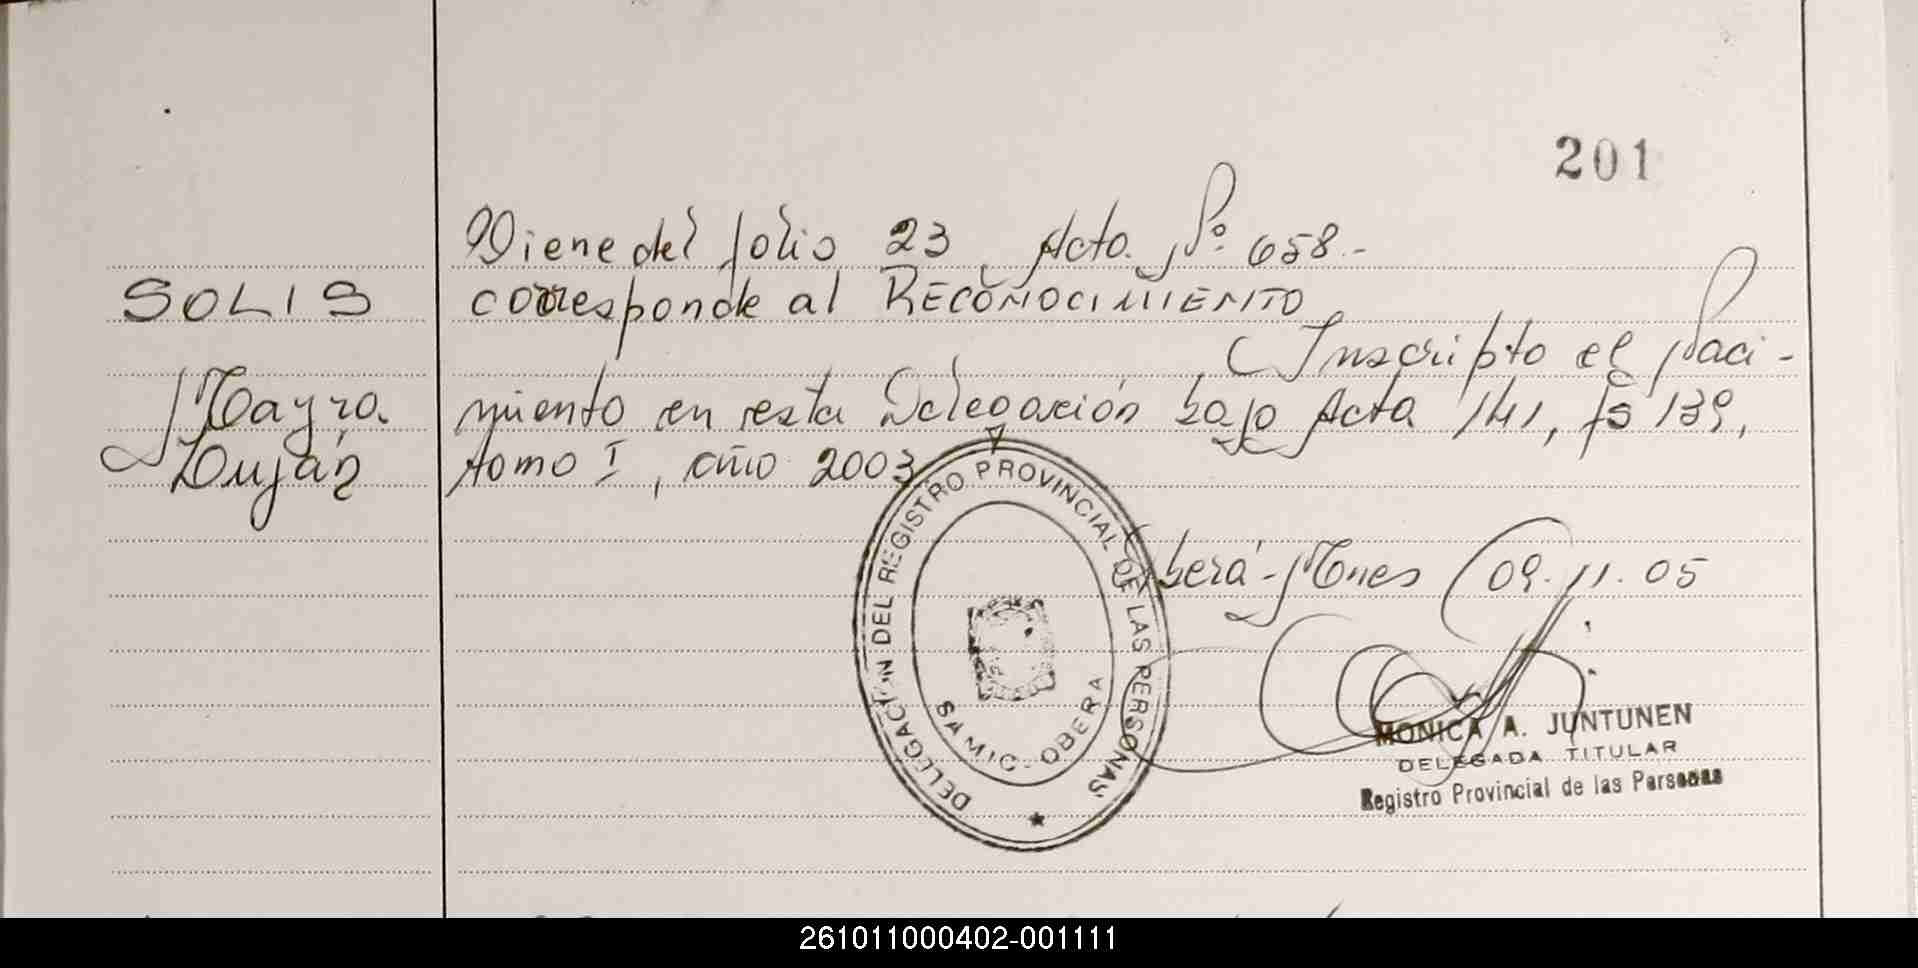 201
Viene del folio 23 Acta Nº 658.-
SOLIS
corresponde al RECONOCIMIENTO
Inscripto el Naci-
Mayra
miento en esta Delegación bajo Acta 141, fs 139,
Luján
tomo I, año 2003
Oberá-Mnes 09.11.05
DELEGACIÓN DEL REGISTRO PROVINCIAL DE LAS PERSONAS
SAMIC-OBERA
MONICA A. JUNTUNEN
DELEGADA TITULAR
Registro Provincial de las Personas
261011000402-001111